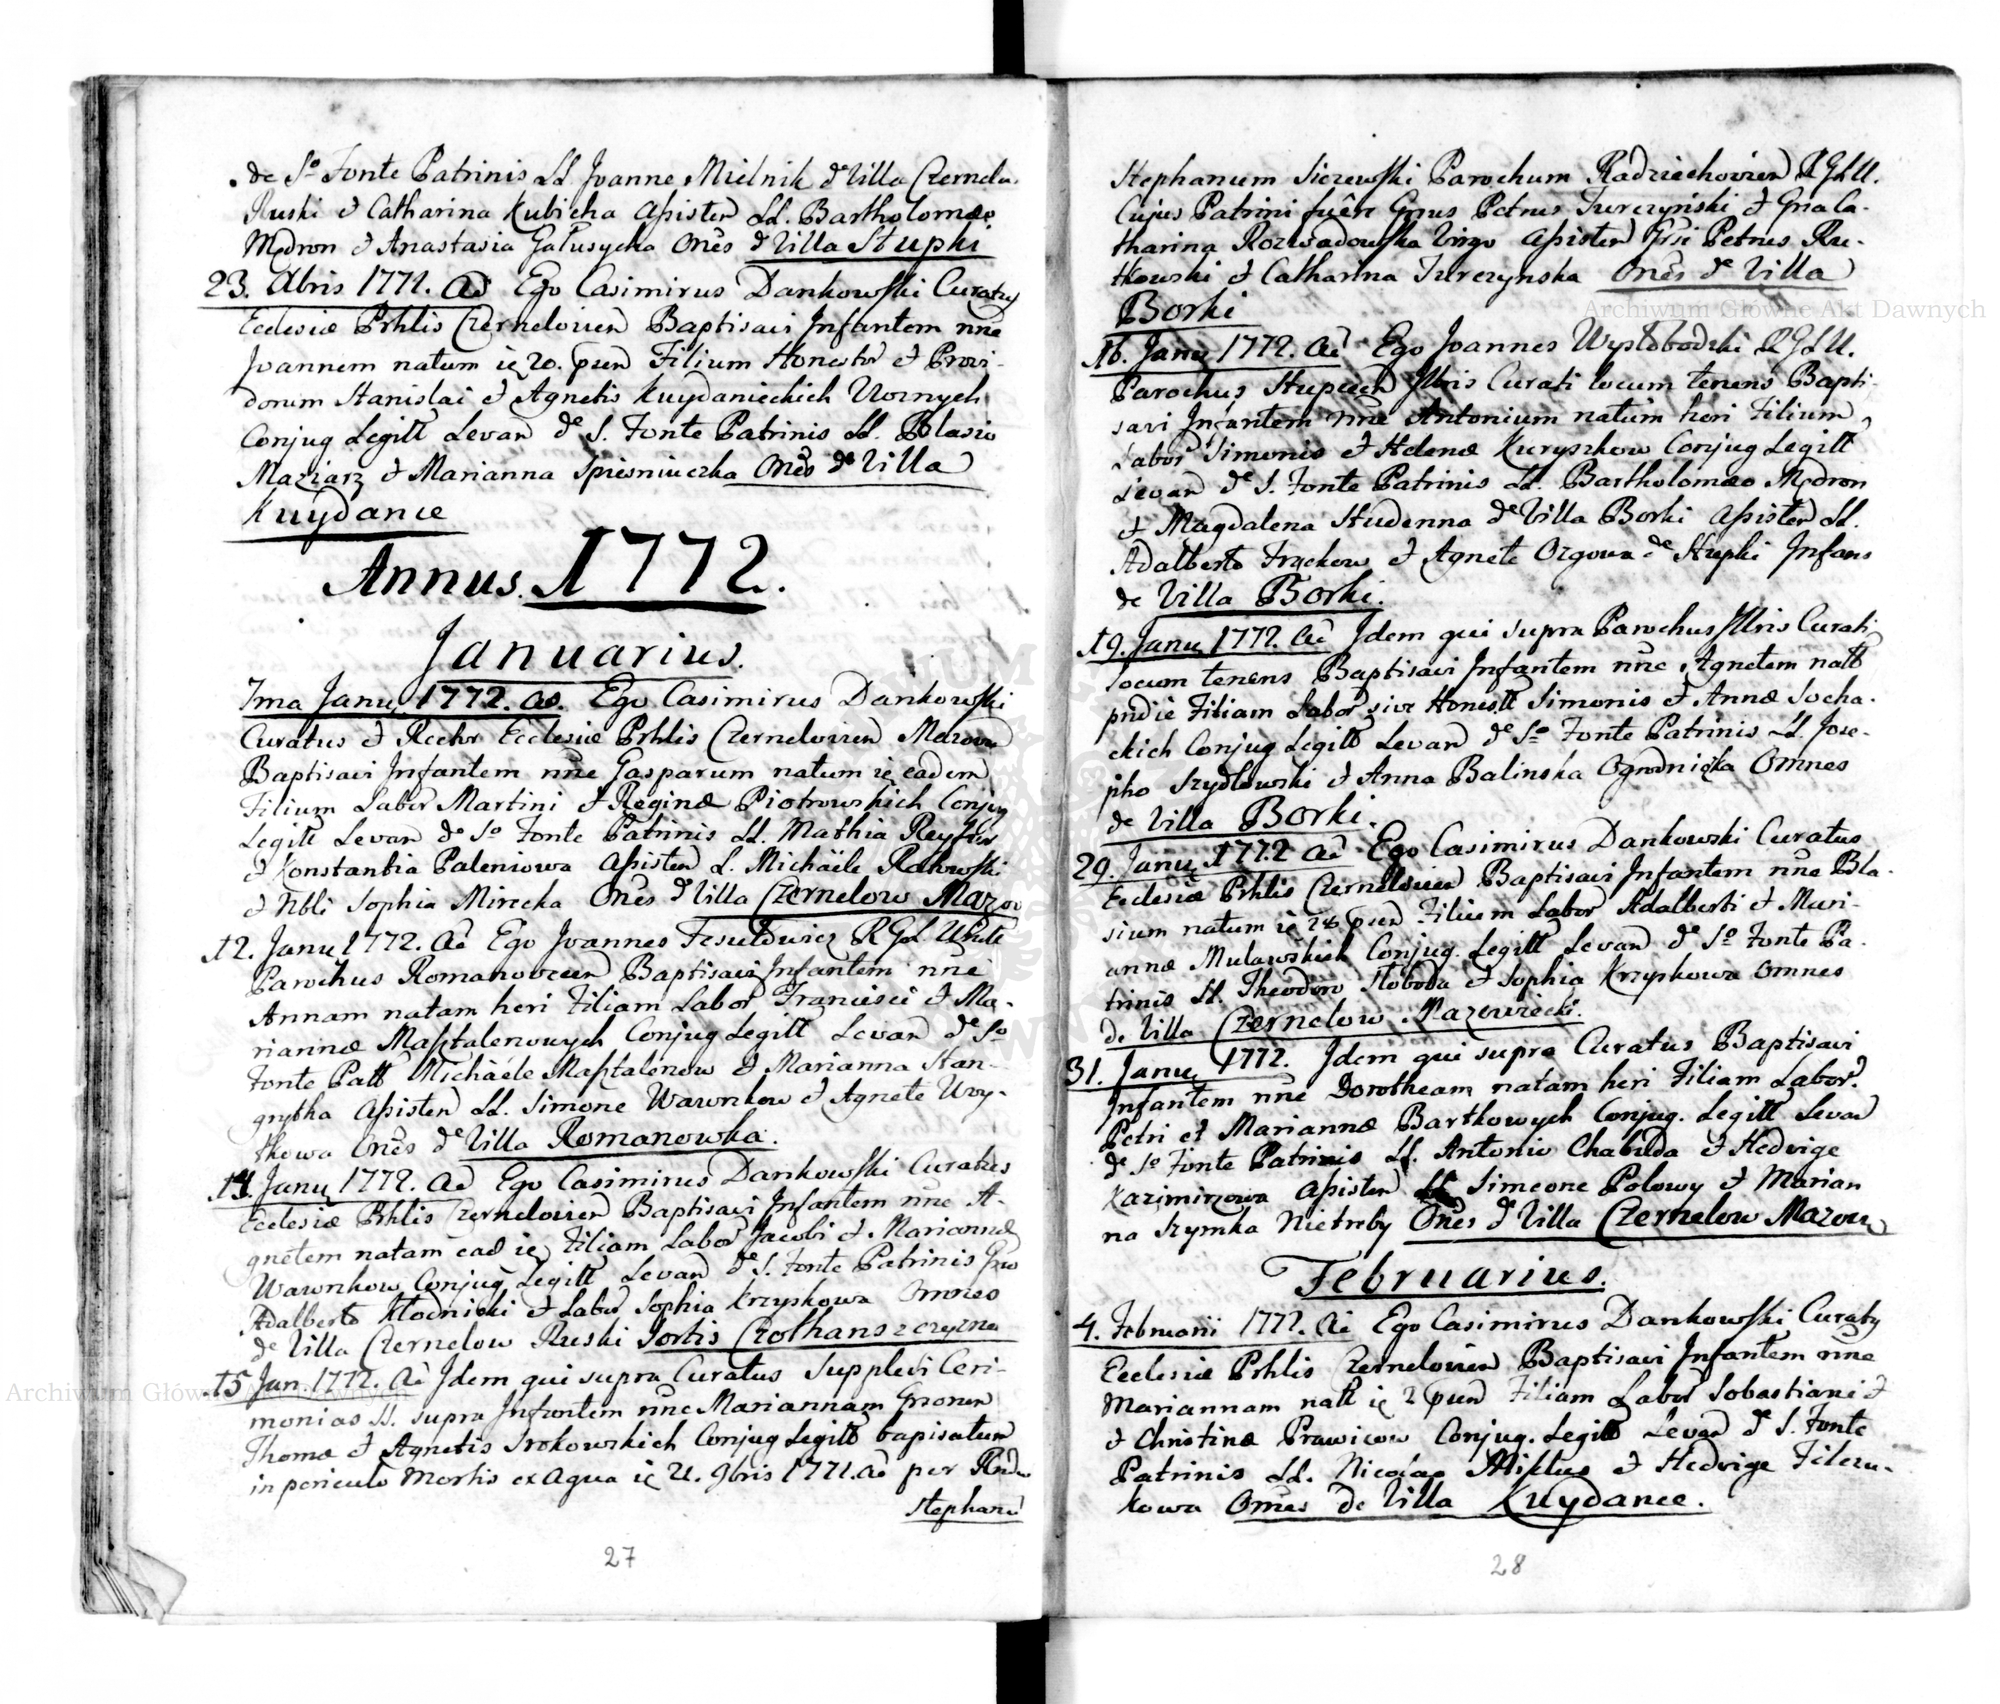 de S° Fonte Patrinis LL Joanne Mielnik de Villa Czernelu
Ruski et Catharina Kubicha Assisten LL. Bartholomæo
Mędron et Anastasia Gałusycha Ones de Villa Stupki
23. Xbris 1771. Ao Ego Casimirus Dankowski Curatus
Ecclesiæ Prhlis Czernelovien Baptisavi Infantem nne
Joannem natum ie 20. psen Filium Honestor et Provi-
dorum Stanislai et Agnetis Kuydanieckich Woznych
Conjug Legitt Levan de S. Fonte Patrinis LL. Blasio
Maziarz et Marianna Spiesniuczka Ones de Villa
Kuydance
Annus. 1772.
Januarius.
Ima Janu 1772. Ao. Ego Casimirus Dankowski
Curatus et Rector Ecclesiæ Prhlis Czernelovien Mazovien
Baptisavi Infantem nne Gasparum natum ie eadem
Filium Labor Martini et Reginæ Piotrowskich Conjug
Legitt Levan de S° Fonte Patrinis LL. Mathia
et Konstantia Paleniowa Assisten L. Michäele Rakowski
et Nbli Sophia Mirecka Ones de Villa Czernelow Mazov
12. Janu 1772. Ao Ego Joannes R G L Unite
Parochus Romanovcen Baptisavi Infantem nne
Annam natam heri Filiam Labor Francisci et Ma-
riannæ Masztalerowych Conjug Legitt Levan de S°
Fonte Patt Michäele Masztalerow et Marianna Stan-
grytka Assisten LL. Simone Wawrykow et Agnete Woy-
tkowa Ones de Villa Romanowka.
14. Janu 1772. Ao Ego Casimirus Dankowski Curatus
Ecclesiæ Prhlis Czernelovien Baptisavi Infantem nne A-
gnetem natam ead ie Filiam Labor Jacobi et Mariannæ
Wawrykow Conjug Legitt Levan de S. Fonte Patrinis
Adalberto Kłodnicki et Labor Sophia Krzyskowa Omnes
de Villa Czernelow Ruski Sortis Czolhanszczyzna
15 Jan 1772. Ao Idem qui supra Curatus Supplevi Ceri-
monias SS. supra Infantem nne Mariannam Gnorum
Thomæ et Agnetis Srokowskich Conjug Legitt bapisatum
in periculo Mortis ex Aqua ie 21. 9bris 1771. Ao per Rndu
Stephanu
27
Stephanum Siczewski Parochum Radziechovien R G L U.
Cujus Patrini fuêre Gnus Petrus Turczyński et Gna Ca-
tharina Rozwadowska Virgo Assisten Gnsi Petrus Ru-
tkowski et Catharina Turczynska Ones de Villa
Borki
16. Janu 1772. Ao Ego Joannes Wysłobodzki R G L U.
Parochus Stupcen Illris Curati locum tenens Bapti-
savi Infantem nne Antonium natum heri Filium
Labor Simonis et Helenæ Kuryszkow Conjug Legitt
Levan de S. Fonte Patrinis LL. Bartholomæo Mędron
et Magdalena Studenna de Villa Borki Assisten LL.
Adalberto Frąckow et Agnete Ozgowa de Stupki Infans
de Villa Borki.
19. Janu 1772. Ao Idem qui supra Parochus Illris Curati
locum tenens Baptisavi Infantem nne Agnetem natt
pridie Filiam Labor sive Honestt Simonis et Annæ Socha-
ckich Conjug Legitt Levan de S° Fonte Patrinis LL. Jose-
pho Szydłowski et Anna Balinska Ogrodniczka Omnes
de Villa Borki.
29. Janu 1772 Ao Ego Casimirus Dankowski Curatus
Ecclesiæ Prhlis Czernelovien Baptisavi Infantem nne Bla-
sium natum ie 28 psen Filium Labor Adalberti et Mari-
annæ Mulawskich Conjug. Legitt Levan de S° Fonte Pa-
trinis LL. Theodoro Słoboda et Sophia Krzyskowa Omnes
de Villa Czernelow Mazowiecki.
31. Janu 1772. Idem qui supra Curatus Baptisavi
Infantem nne Dorotheam natam heri Filiam Labor.
Petri et Mariannæ Bartkowych Conjug. Legitt Levan
de S° Fonte Patrinis LL. Antonio Chabuda et Hedvige
Kazimirzowa Assisten LL Simeone Polowy et Marian
na Szymka Nietreby Ones de Villa Czernelow Mazow
Februarius.
4. Februarii 1772. Ao Ego Casimirus Dankowski Curatus
Ecclesiæ Prhlis Czernelovien Baptisavi Infantem nne
Mariannam natt ie 2 psen Filiam Labor Sobastiani et
et Christinæ Prawicow Conjug. Legitt Levan de S. Fonte
Patrinis LL. Nicolao Miklus et Hedvige Filezu-
kowa Omes de Villa Kuydance.
28
Archiwum Główne Akt Dawnych
Archiwum Główne Akt Dawnych